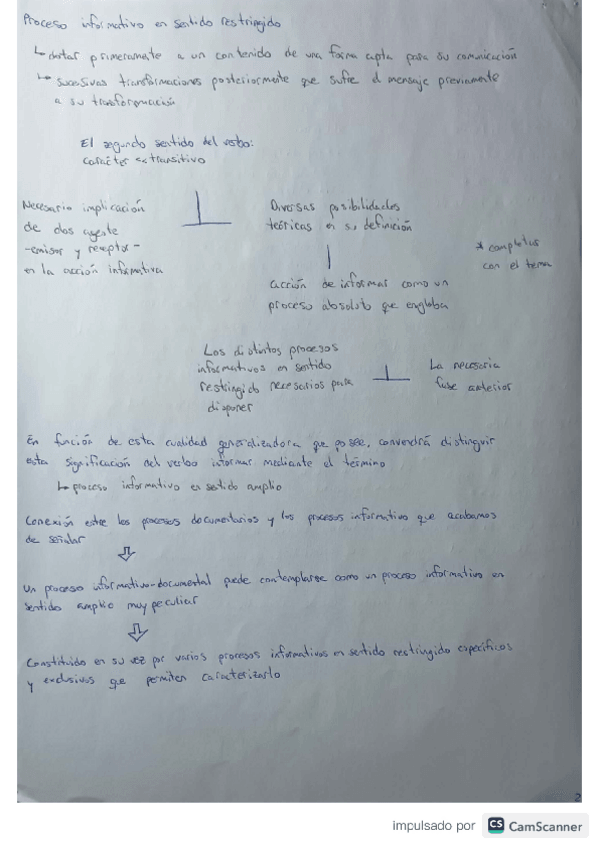 Proceso informativo en sentido restringido
↳ dotar primeramente a un contenido de una forma apta para su comunicación
↳ sucesivas transformaciones posteriormente que sufre el mensaje previamente
a su trasformación
El segundo sentido del verbo:
carácter transitivo
Necesaria implicación
de dos agente
-emisor y receptor-
en la acción informativa
Diversas posibilidades
teóricas en su definición
acción de informar como un
proceso absoluto que engloba
* completas
con el tema
Los distintos procesos
informativos en sentido
restringido necesarios para
disponer
La necesaria
fase anterior
En función de esta cualidad generalizadora que posee, convendrá distinguir
esta significación del verbo informar mediante el término
↳ proceso informativo en sentido amplio
Conexión entre los procesos documentarios y los procesos informativo que acabamos
de señalar
Un proceso informativo-documental puede contemplarse como un proceso informativo en
sentido amplio muy peculiar
Constituido en su vez por varios procesos informativos en sentido restringido específicos
y exclusivos que permiten caracterizarlo
2
impulsado por CS CamScanner